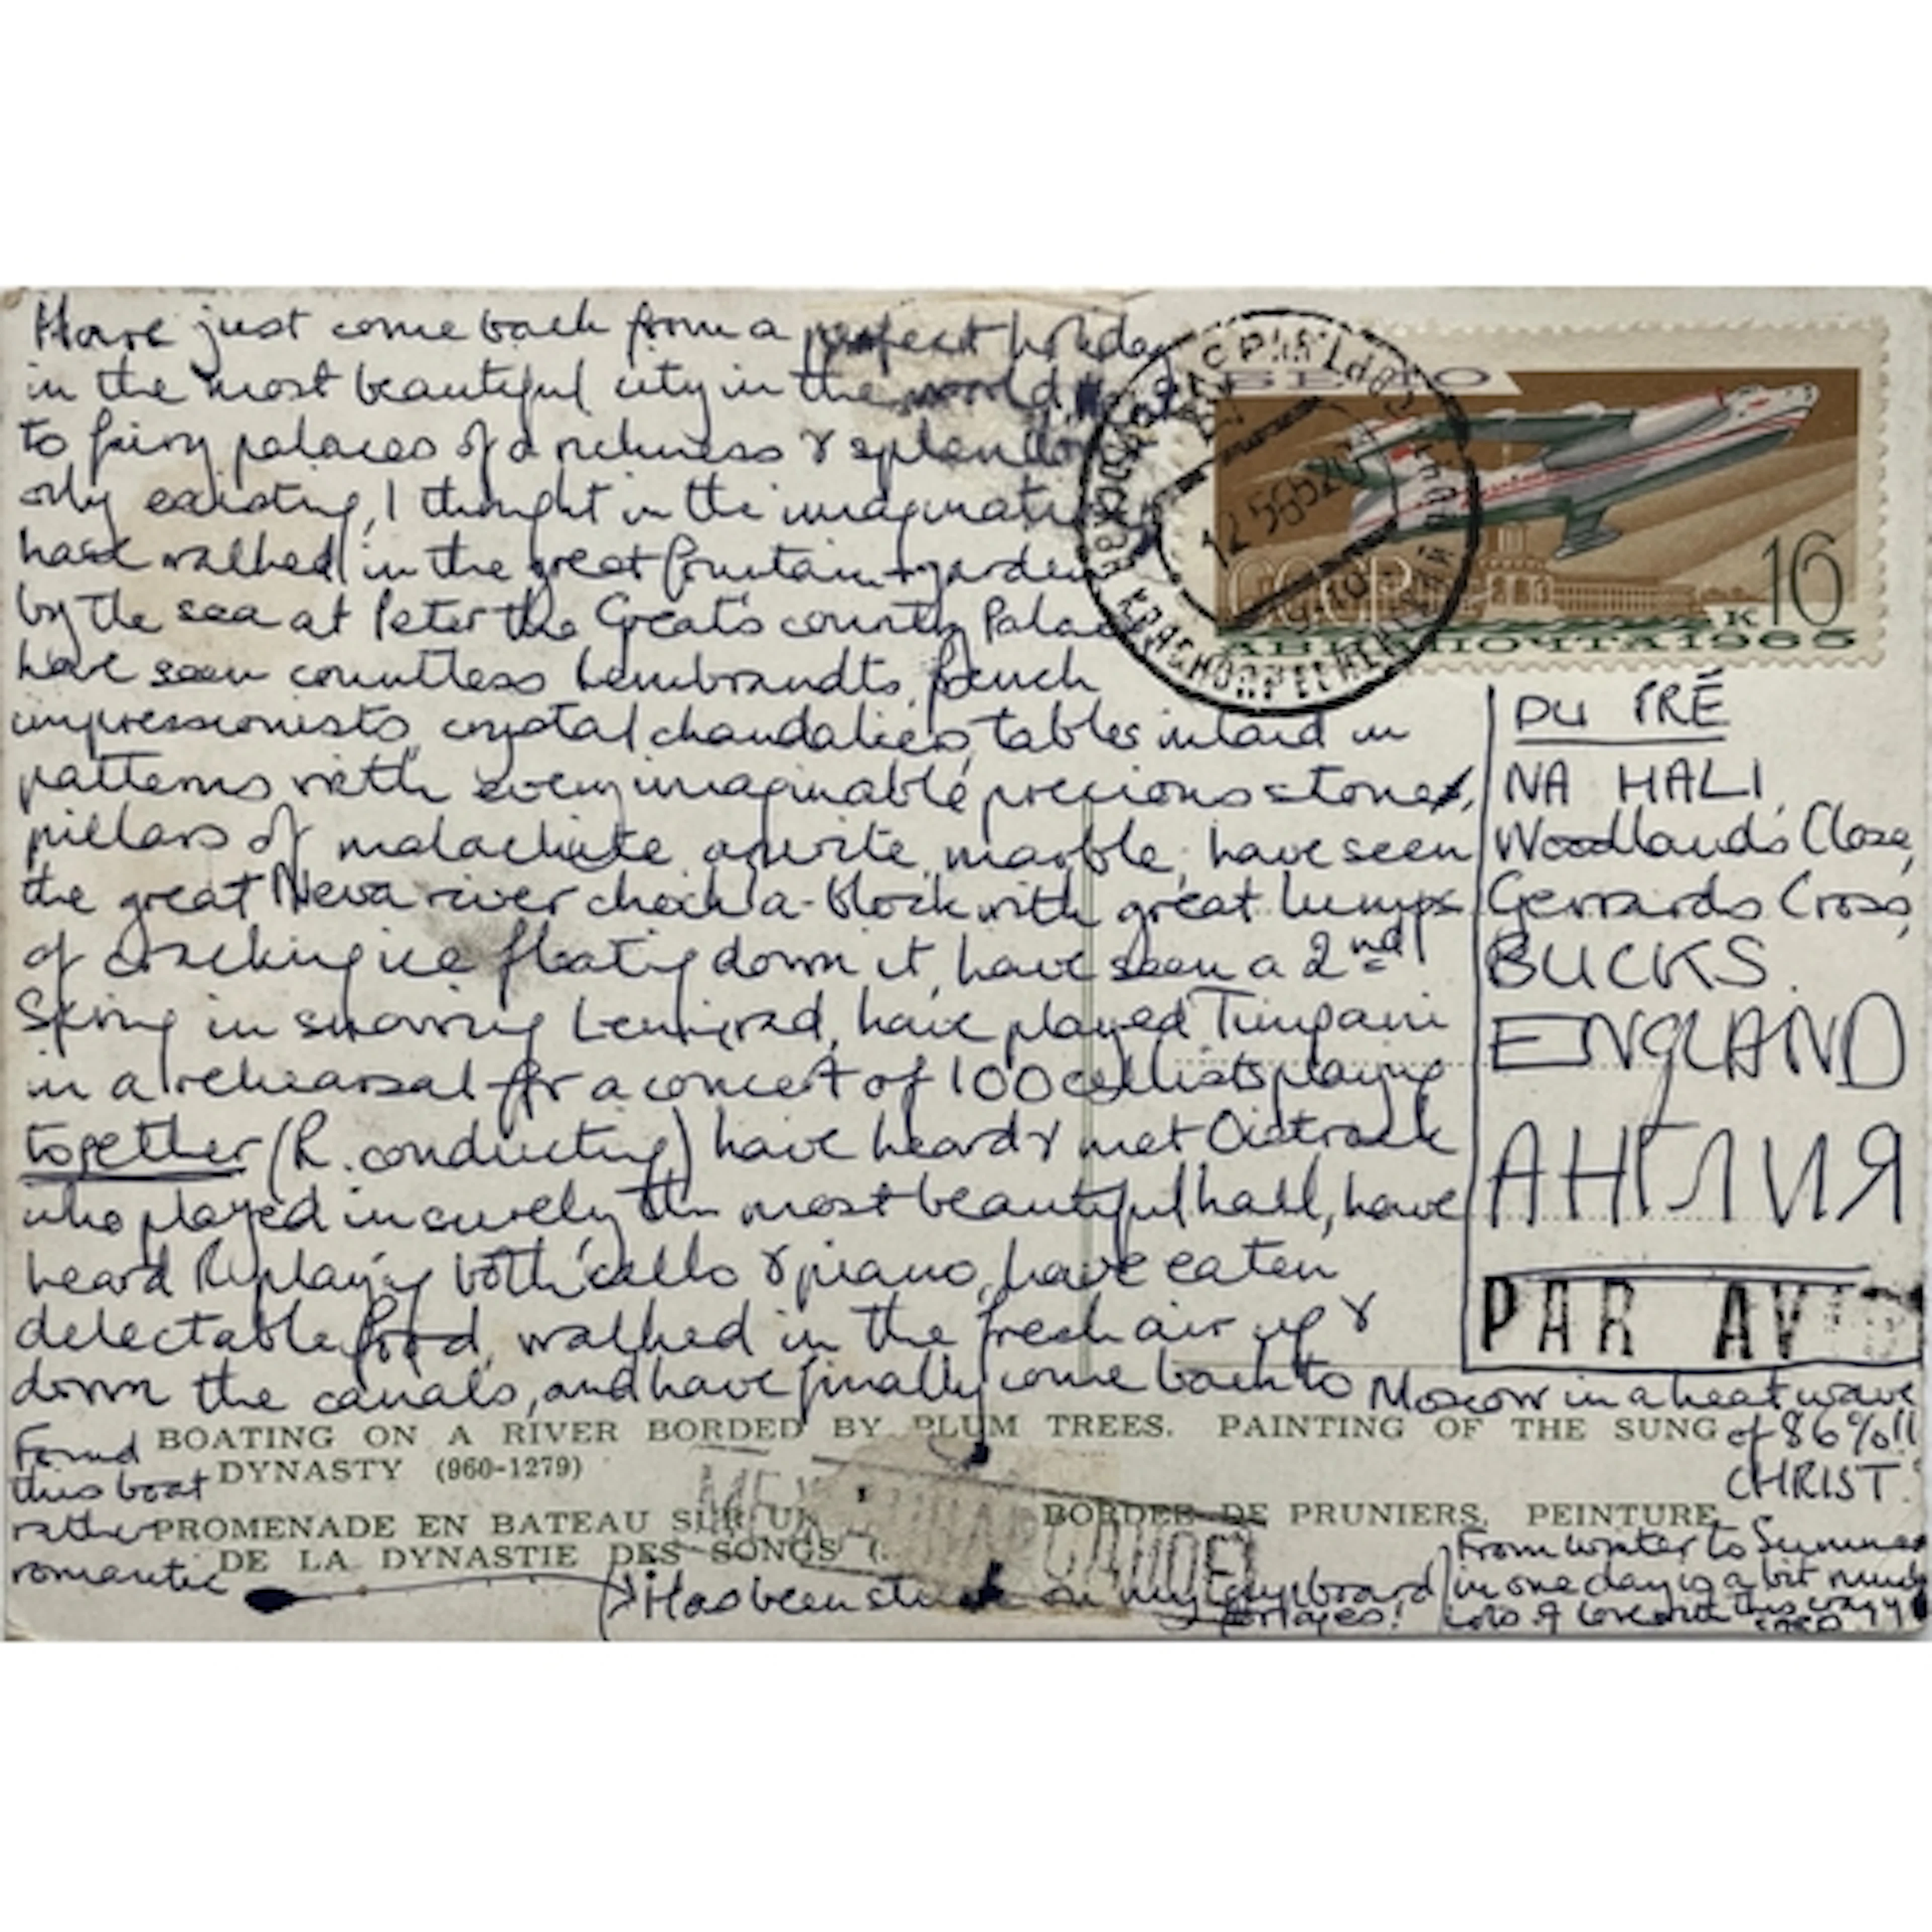 Have just come back from a perfect holiday
in the most beautiful city in the world,
to fairy palaces of a richness & splendour
only existing, I thought in the imagination,
have walked in the great fountain + gardens
by the sea at Peter the Great's country Palace
have seen countless Rembrandts, french
impressionists, crystal chandaliers, tables inlaid in
patterns with every imaginable precious stones,
pillars of malachite, marble, have seen
the great Neva river chock-a-block with great lumps
of cracking ice floating down it, have seen a 2nd
Spring in snowing Leningrad, have played Timpani
in a rehearsal for a concert of 100 cellists playing
together (R. conducting) have heard & met Oistrack
who played in surely the most beautiful hall, have
heard R. playing both 'cello & piano, have eaten
delectable food, walked in the fresh air up &
down the canals, and have finally come back to Moscow in a heat wave
of 86%!!
CHRIST.
From winter to Summer
in one day is a bit much
Lots of love
Found
this boat
rather
romantic
Has been stuck on my cupboard
for ages!
BOATING ON A RIVER BORDED BY PLUM TREES. PAINTING OF THE SUNG
DYNASTY (960-1279)
PROMENADE EN BATEAU SUR UN BORDEE DE PRUNIERS. PEINTURE
DE LA DYNASTIE DES SONGS (
16
к
СССР
АВИАПОЧТА 1965
DU PRÉ
NA HALI,
Woodlands Close,
Gerrards Cross,
BUCKS.
ENGLAND
АНГЛИЯ
PAR AVION